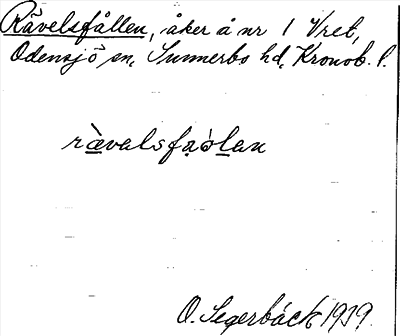 Rävelsfållen, åker å nr 1 Vret,
Odensjö sn, Sunnerbo hd, Kronob. l.
rävalsfaólan
O. Segerbäck 1939.